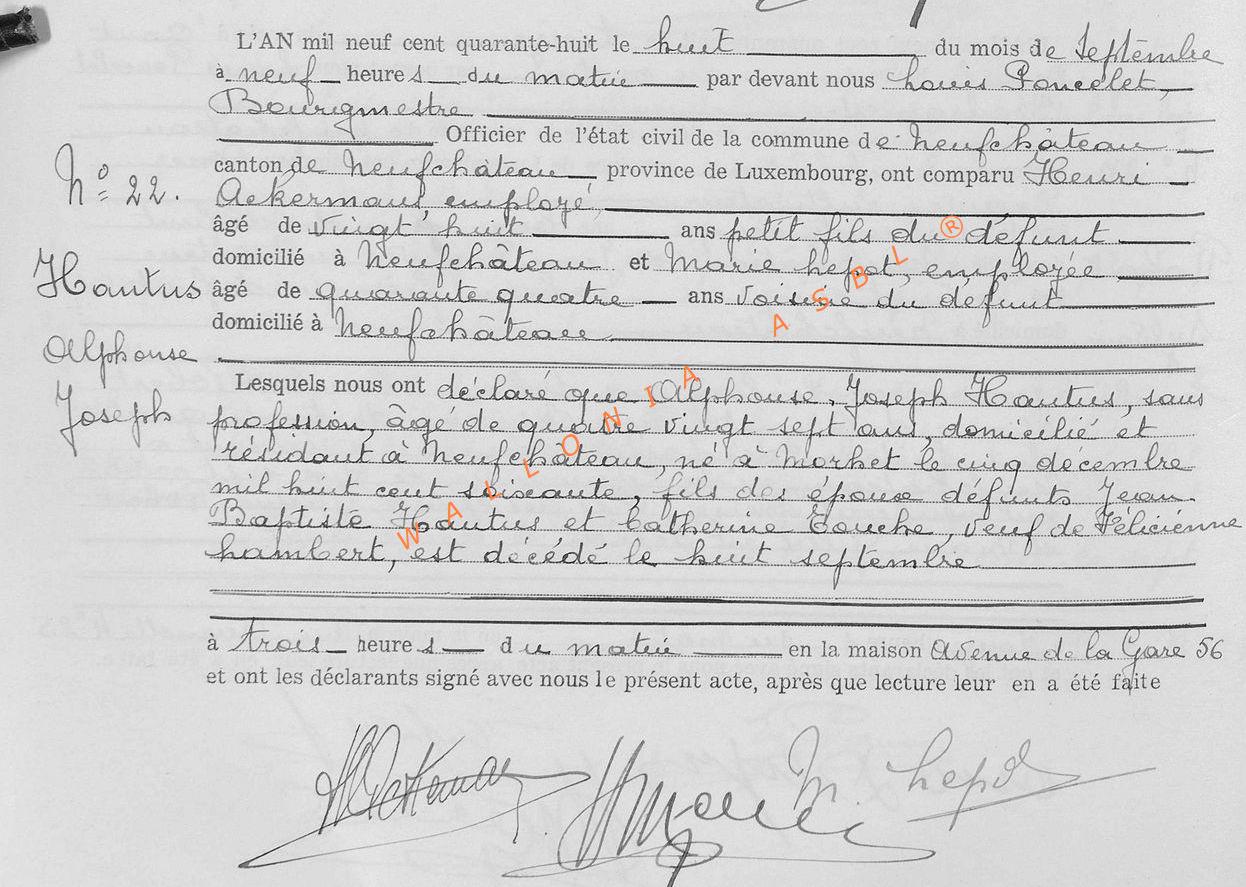 L'AN mil neuf cent quarante-huit le huit du mois de Septembre
à neuf heures du matin par devant nous Louis Poncelet,
Bourgmestre
Officier de l'état civil de la commune de Neufchâteau
canton de Neufchâteau province de Luxembourg, ont comparu Henri
Nº 22. Ackermans, employé,
âgé de vingt huit ans petit fils du défunt
domicilié à Neufchâteau et Marie Lepot, employée,
Hautus âgé de quarante quatre ans voisine du défunt
domicilié à Neufchâteau
Alphonse
Joseph
Lesquels nous ont déclaré que Alphonse, Joseph Hautus, sans
profession, âgé de quatre vingt sept ans, domicilié et
résidant à Neufchâteau, né à Morhet le cinq décembre
mil huit cent soixante, fils des époux défunts Jean
Baptiste Hautus et Catherine Touche, veuf de Félicienne
Lambert, est décédé le huit septembre
à trois heures du matin en la maison Avenue de la Gare 56
et ont les déclarants signé avec nous le présent acte, après que lecture leur en a été faite
M. Lepot
WALLONIA ASBL ®